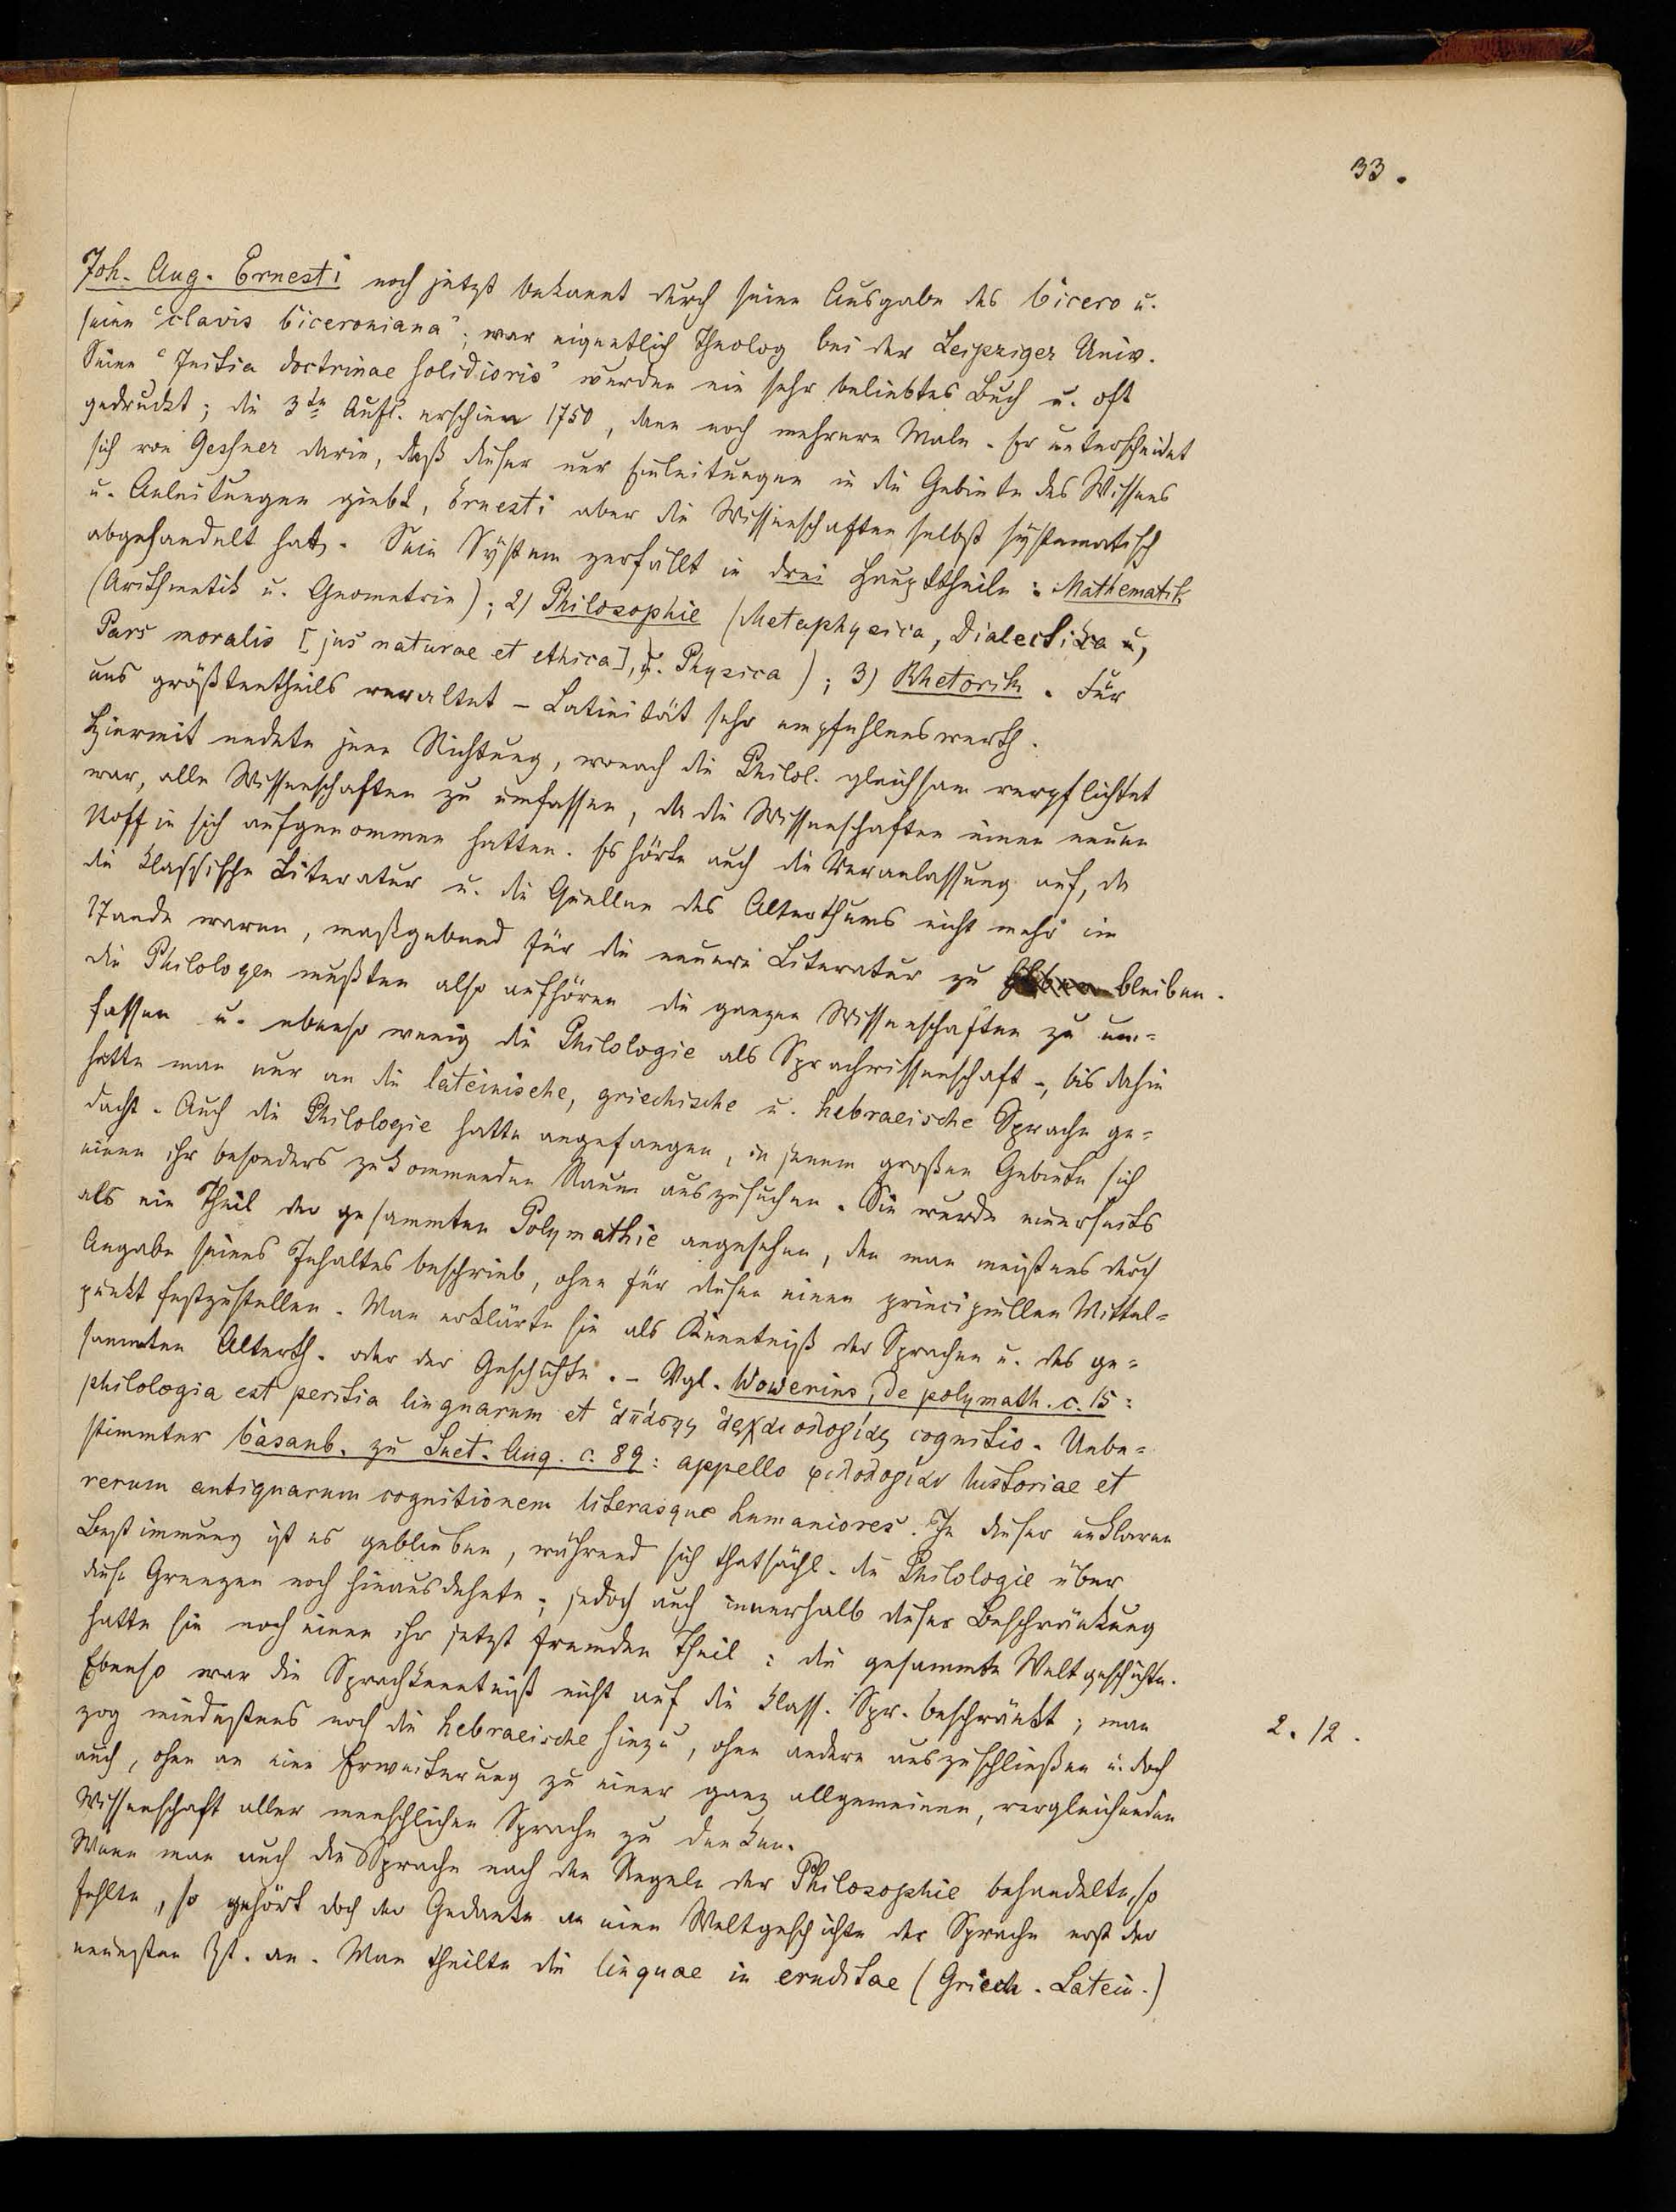 33.
Joh. Aug. Ernesti noch jetzt bekannt durch seine Ausgabe des Cicero u.
seine "clavis Ciceroniana"; war eigentlich Theolog bei der Leipziger Univ.
Seine "Initia doctrinae solidioris" wurden ein sehr beliebtes Buch u. oft
gedruckt; die 3te Aufl. erschien 1750, dann noch mehrere Male. Er unterscheidet
sich von Gessner darin, daß dieser nur Einleitungen in die Gebiete des Wissens
u. Anleitungen giebt, Ernesti aber die Wissenschaften selbst systematisch
abgehandelt hat. Sein System zerfällt in drei Haupttheile: Mathematik
(Arithmetik u. Geometrie); 2) Philosophie (Metaphysica, Dialectica u,
Pars moralis [jus naturae et ethica], u. Physica); 3) Rhetorik. Für
uns größtentheils veraltet – Latinität sehr empfehlenswerth.
Hiermit endete jene Richtung, wonach die Philol. gleichsam verpflichtet
war, alle Wissenschaften zu umfassen, da die Wissenschaften einen neuen
Stoff in sich aufgenommen hatten. Es hörte auch die Veranlassung auf, da
die klassische Literatur u. die Quellen des Alterthums nicht mehr im
Stande waren, maßgebend für die neuere Literatur zu bleiben.
die Philologen mußten also aufhören die ganzen Wissenschaften zu um=
fassen u. ebenso wenig die Philologie als Sprachwissenschaft –, bis dahin
hatte man nur an die lateinische, griechische u. hebraeische Sprache ge=
dacht. Auch die Philologie hatte angefangen, in jenem großen Gebiete sich
einen ihr besonders zukommenden Raum auszusuchen. Sie wurde einerseits
als ein Theil der gesammten Polymathie angesehen, den man meistens durch
Angabe seines Inhaltes beschrieb, ohne für diesen einen principiellen Mittel=
punkt festzustellen. Man erklärte sie als Kenntniß der Sprachen u. des ge=
sammten Alterth. oder der Geschichte. – Vgl. Wowerius, de polymath. c. 15:
philologia est peritia linguarum et ἁπάσης ἀρχαιολογίας cognitio. Unbe=
stimmter Casaub. zu Suet. Aug. c. 89: appello φιλολογίαν historiae et
rerum antiquarum cognitionem literasque humaniores. In dieser unklaren
Bestimmung ist es geblieben, während sich thatsächl. die Philologie über
diese Grenzen noch hinausdehnte; jedoch auch innerhalb dieser Beschränkung
hatte sie noch einen ihr jetzt fremden Theil: die gesammte Weltgeschichte.
Ebenso war die Sprachkenntniß nicht auf die klass. Spr. beschränkt; man
zog mindestens noch die hebraeische hinzu, ohne andere auszuschließen u. doch
auch, ohne an eine Erweiterung zu einer ganz allgemeinen, vergleichenden
Wissenschaft aller menschlichen Sprache zu denken.
2. 12.
Wenn man auch die Sprache nach den Regeln der Philosophie behandelte, so
fehlte, so gehört doch der Gedanke an eine Weltgeschichte der Sprache erst der
neuesten Zt. an. Man theilte die linguae in eruditae (Griech. Latein.)